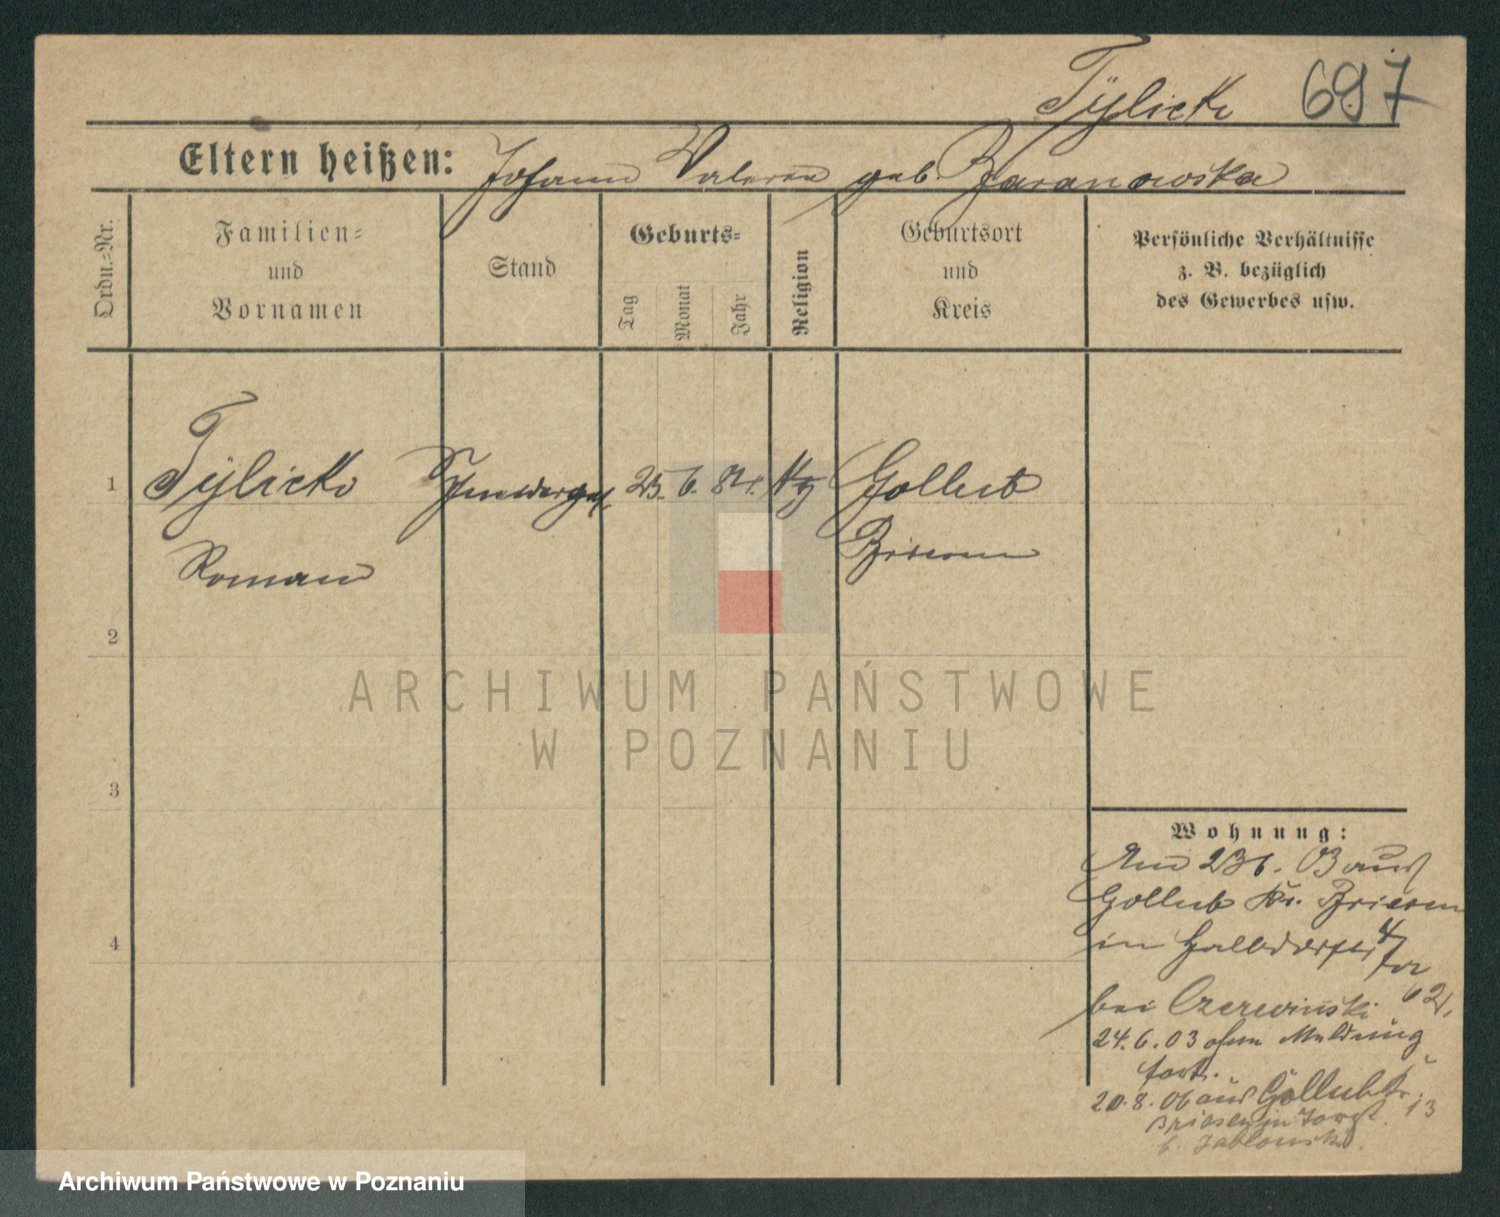 Tylicki 697
Eltern heißen: Johann Valeria geb. Baranowska
Ordn.-Nr.
Familien-
und
Vornamen
Stand
Geburts-
Tag
Monat
Jahr
Religion
Geburtsort
und
Kreis
Persönliche Verhältnisse
z. B. bezüglich
des Gewerbes usw.
1 Tylicki 25. 6. 84. Gollub
Roman Briesen
2
3
4
Wohnung:
Am 23 6. 03 aus
Gollub Kr. Briesen
in
bei Czerwinski
24.6.03 ohne Meldung
fort.
20.8.06 aus Gollub Kr.
Briesen in 13
b. Jablonski.
ARCHIWUM PAŃSTWOWE
W POZNANIU
Archiwum Państwowe w Poznaniu